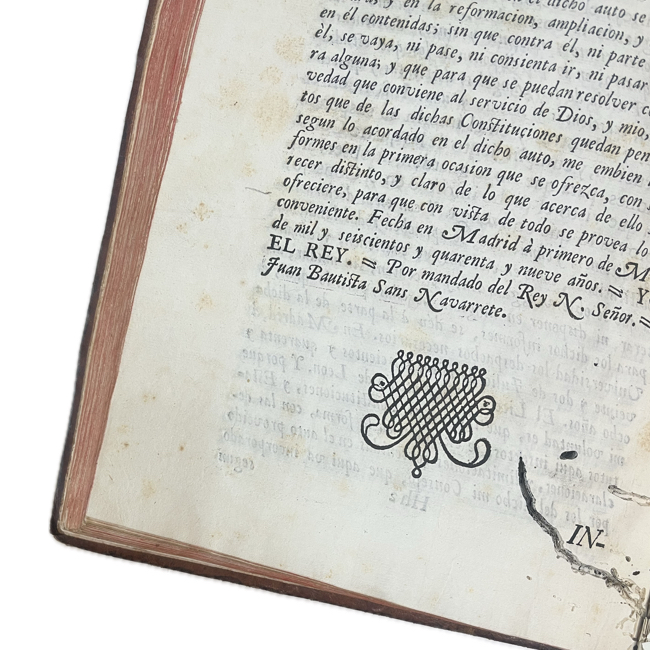 y en la reformacion, ampliacion, y
en èl contenidas; sin que contra èl, ni parte
èl, se vaya, ni pase, ni consienta ir, ni pasar
ra alguna; y que para que se puedan resolver
vedad que conviene al servicio de Dios, y mio,
tos que de las dichas Constituciones quedan
segun lo acordado en el dicho auto, me embien
formes en la primera ocasion que se ofrezca, con
recer distinto, y claro de lo que acerca de ello
ofreciere, para que con vista de todo se provea lo
conveniente. Fecha en Madrid à primero de M
de mil y seiscientos y quarenta y nueve años. = Y
EL REY. = Por mandado del Rey N. Señor. =
Juan Bautista Sans Navarrete.
IN-